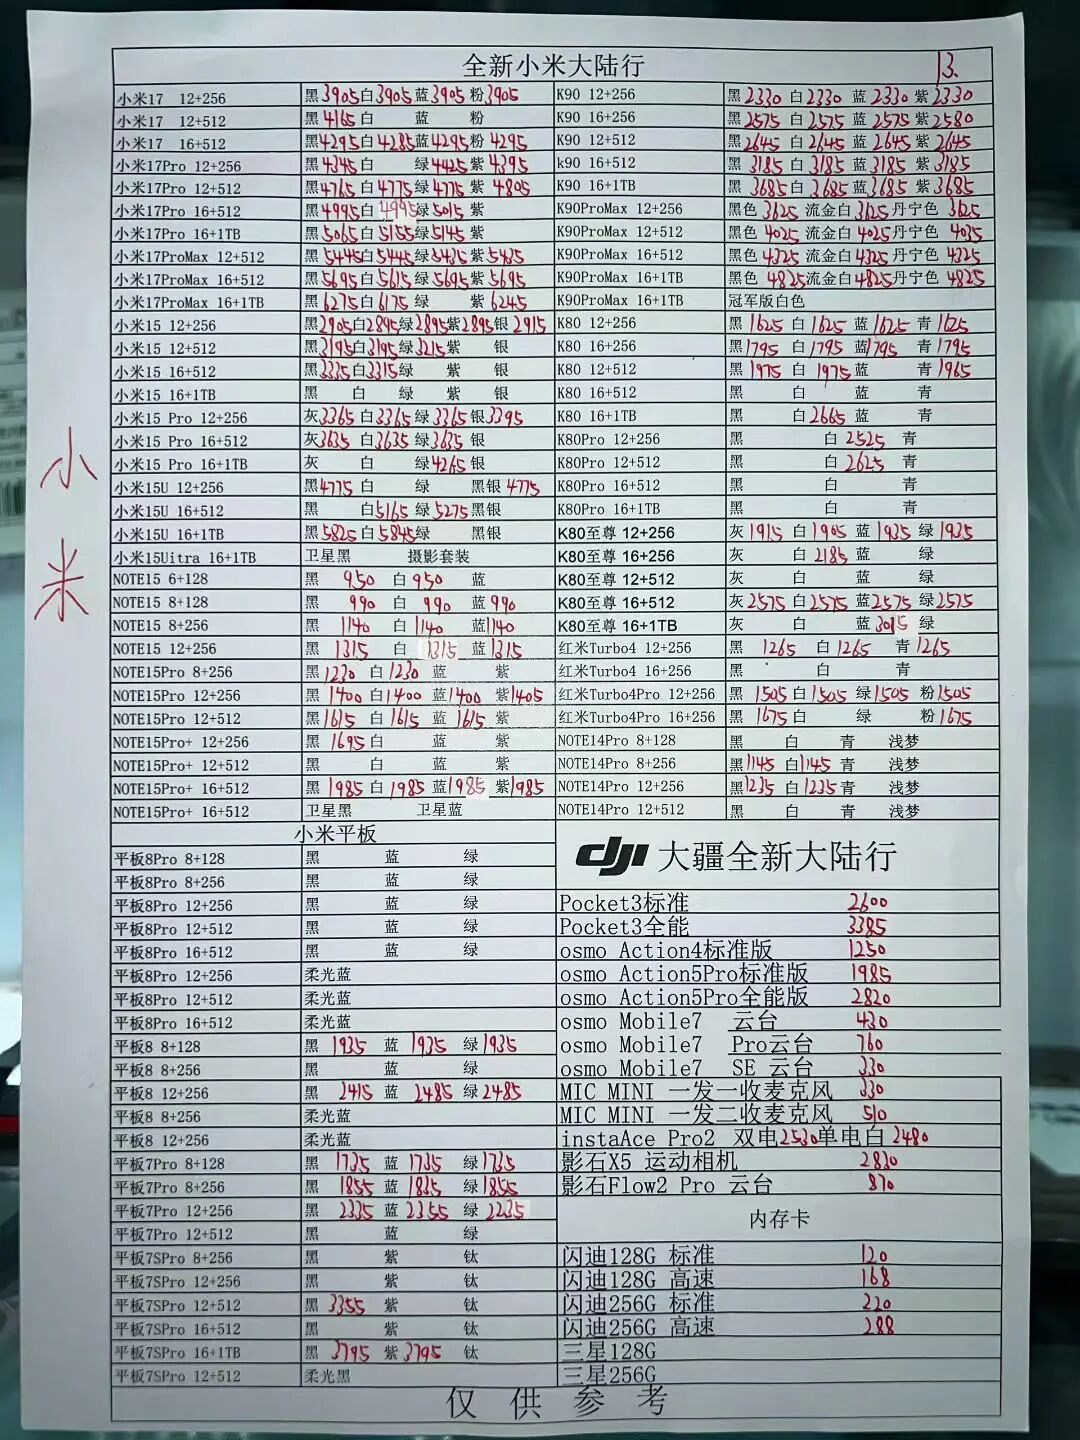 全新小米大陆行 13.
小米17 12+256 黑3905白3905蓝3905粉3905 K90 12+256 黑2330 白2330 蓝2330紫2330
小米17 12+512 黑4165白 蓝 粉 K90 16+256 黑2575 白2575 蓝2575紫2580
小米17 16+512 黑4295白4285蓝4295粉4295 K90 12+512 黑2645 白2645 蓝2645紫2645
小米17Pro 12+256 黑4345白 绿4425紫4395 k90 16+512 黑3185 白3185 蓝3185 紫3185
小米17Pro 12+512 黑4765白4775绿4775紫4805 K90 16+1TB 黑3685白3685蓝3685紫3685
小米17Pro 16+512 黑4995白4995绿5015紫 K90ProMax 12+256 黑色3625流金白3625丹宁色3625
小米17Pro 16+1TB 黑5065白5155绿5145紫 K90ProMax 12+512 黑色4025流金白4025丹宁色4035
小米17ProMax 12+512 黑5445白5445绿5435紫5435 K90ProMax 16+512 黑色4325流金白4325丹宁色4325
小米17ProMax 16+512 黑5695白5615绿5695紫5695 K90ProMax 16+1TB 黑色4825流金白4825丹宁色4825
小米17ProMax 16+1TB 黑6275白6175绿 紫6245 K90ProMax 16+1TB 冠军版白色
小米15 12+256 黑2905白2895绿2895紫2895银2915 K80 12+256 黑1625 白1625蓝1625青1625
小米15 12+512 黑3195白3195绿3215紫 银 K80 16+256 黑1795 白1795 蓝1795 青1795
小米15 16+512 黑3335白3315绿 紫 银 K80 12+512 黑1975 白1975 蓝 青1965
小米15 16+1TB 黑 白 绿 紫 银 K80 16+512 黑 白 蓝 青
小米15 Pro 12+256 灰3365白3365绿3365银3395 K80 16+1TB 黑 白2665 蓝 青
小米15 Pro 16+512 灰3635白3635绿3635银 K80Pro 12+256 黑 白2525 青
小米15 Pro 16+1TB 灰 白 绿4265银 K80Pro 12+512 黑 白2625 青
小米15U 12+256 黑4775白 绿 黑银4775 K80Pro 16+512 黑 白 青
小米15U 16+512 黑 白5165绿5275黑银 K80Pro 16+1TB 黑 白 青
小米15U 16+1TB 黑5825白5845绿 黑银 K80至尊 12+256 灰1915 白1905 蓝1935 绿1935
小米15Uitra 16+1TB 卫星黑 摄影套装 K80至尊 16+256 灰 白2185蓝 绿
NOTE15 6+128 黑 950 白950 蓝 K80至尊 12+512 灰 白 蓝 绿
NOTE15 8+128 黑 990 白 990 蓝990 K80至尊 16+512 灰2575 白2575蓝2575绿2575
NOTE15 8+256 黑 1140 白1140 蓝1140 K80至尊 16+1TB 灰 白 蓝3015绿
NOTE15 12+256 黑 1315 白1315 蓝1315 红米Turbo4 12+256 黑 1265 白1265 青1265
NOTE15Pro 8+256 黑1230 白1230 蓝 紫 红米Turbo4 16+256 黑 白 青
NOTE15Pro 12+256 黑1400白1400 蓝1400 紫1405 红米Turbo4Pro 12+256 黑1505白1505绿1505粉1505
NOTE15Pro 12+512 黑1615 白1615 蓝1615 紫 红米Turbo4Pro 16+256 黑1675白 绿 粉1675
NOTE15Pro+ 12+256 黑1695白 蓝 紫 NOTE14Pro 8+128 黑 白 青 浅梦
NOTE15Pro+ 12+512 黑 白 蓝 紫 NOTE14Pro 8+256 黑1145 白1145 青 浅梦
NOTE15Pro+ 16+512 黑1985白1985蓝1985紫1985 NOTE14Pro 12+256 黑1235 白1235青 浅梦
NOTE15Pro+ 16+512 卫星黑 卫星蓝 NOTE14Pro 12+512 黑 白 青 浅梦
小米
小米平板
平板8Pro 8+128 黑 蓝 绿 dji 大疆全新大陆行
平板8Pro 8+256 黑 蓝 绿
平板8Pro 12+256 黑 蓝 绿 Pocket3标准 2600
平板8Pro 12+512 黑 蓝 绿 Pocket3全能 3385
平板8Pro 16+512 黑 蓝 绿 osmo Action4标准版 1250
平板8Pro 12+256 柔光蓝 osmo Action5Pro标准版 1985
平板8Pro 12+512 柔光蓝 osmo Action5Pro全能版 2820
平板8Pro 16+512 柔光蓝 osmo Mobile7 云台 430
平板8 8+128 黑1935 蓝1935 绿1935 osmo Mobile7 Pro云台 760
平板8 8+256 黑 蓝 绿 osmo Mobile7 SE 云台 330
平板8 12+256 黑 2415 蓝 2485 绿2485 MIC MINI 一发一收麦克风 330
平板8 8+256 柔光蓝 MIC MINI 一发二收麦克风 510
平板8 12+256 柔光蓝 instaAce Pro2 双电2530单电白2480
平板7Pro 8+128 黑 1735 蓝1735 绿1735 影石X5 运动相机 2830
平板7Pro 8+256 黑 1855 蓝1835 绿1855 影石Flow2 Pro 云台 870
平板7Pro 12+256 黑 2335 蓝2355 绿2235 内存卡
平板7Pro 12+512 黑 蓝 绿
平板7SPro 8+256 黑 紫 钛 闪迪128G 标准 120
平板7SPro 12+256 黑 紫 钛 闪迪128G 高速 168
平板7SPro 12+512 黑3355 紫 钛 闪迪256G 标准 220
平板7SPro 16+512 黑 紫 钛 闪迪256G 高速 288
平板7SPro 16+1TB 黑3795 紫3795 钛 三星128G
平板7SPro 12+512 柔光黑 三星256G
仅供参考